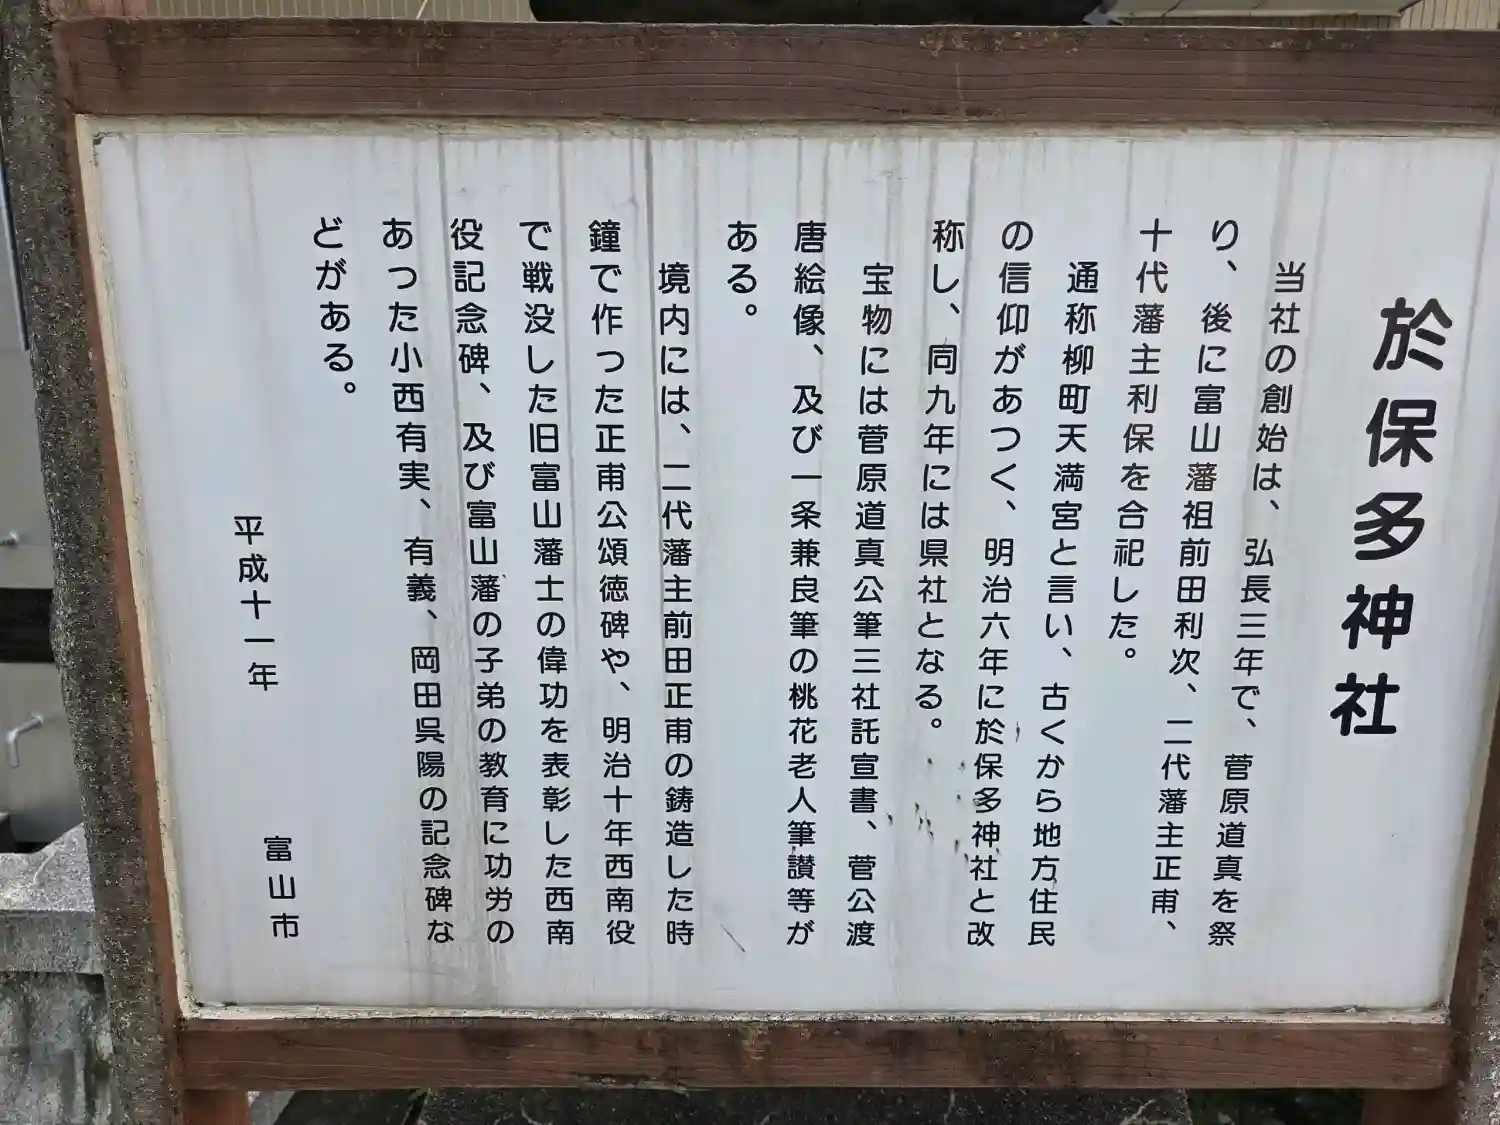 於保多神社
当社の創始は、弘長三年で、菅原道真を祭
り、後に富山藩祖前田利次、二代藩主正甫、
十代藩主利保を合祀した。
通称柳町天満宮と言い、古くから地方住民
の信仰があつく、明治六年に於保多神社と改
称し、同九年には県社となる。
宝物には菅原道真公筆三社託宣書、菅公渡
唐絵像、及び一条兼良筆の桃花老人筆讃等が
ある。
境内には、二代藩主前田正甫の鋳造した時
鐘で作った正甫公頌徳碑や、明治十年西南役
で戦没した旧富山藩士の偉功を表彰した西南
役記念碑、及び富山藩の子弟の教育に功労の
あった小西有実、有義、岡田呉陽の記念碑な
どがある。
平成十一年
富山市